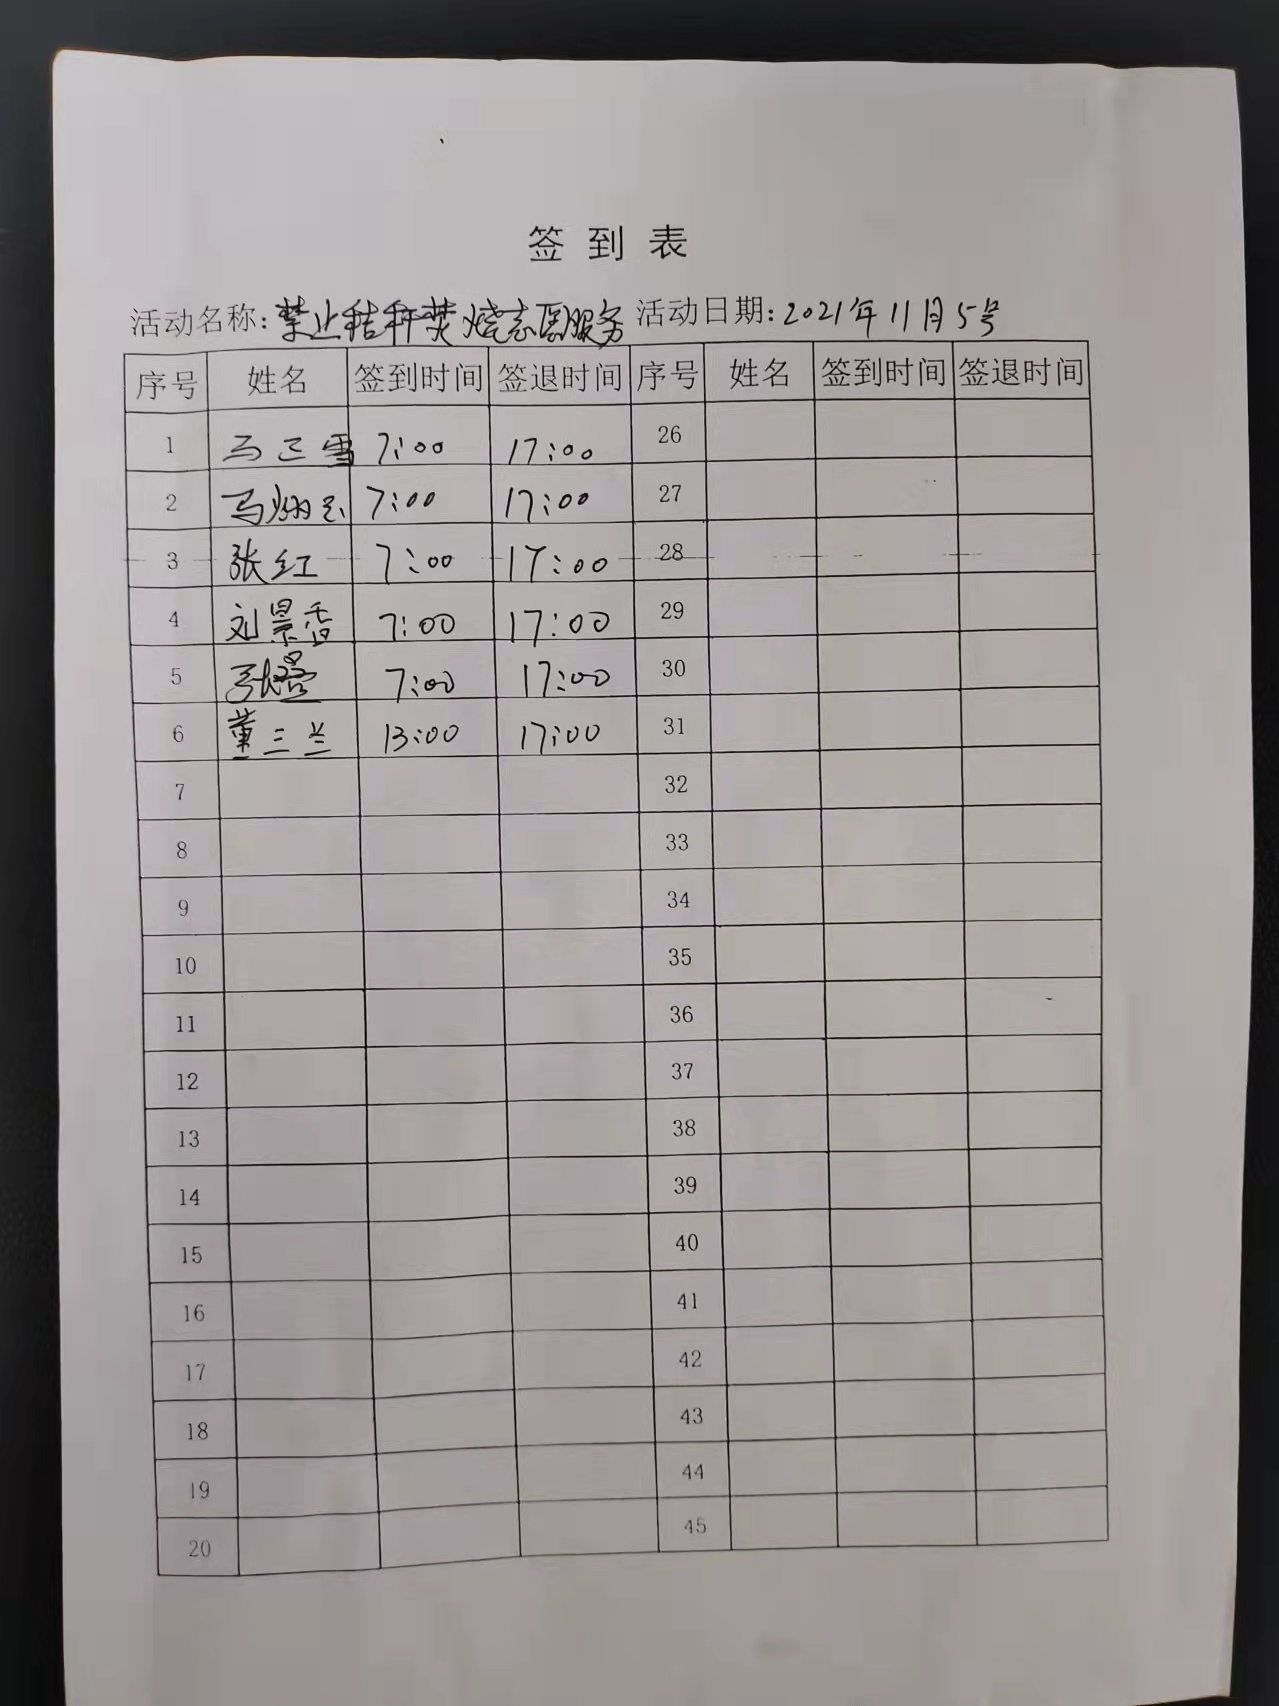 签到表
活动名称:禁止秸秆焚烧志愿服务 活动日期:2021年11月5号
序号 姓名 签到时间 签退时间 序号 姓名 签到时间 签退时间
1 马正雪 7:00 17:00 26
2 马 7:00 17:00 27
3 张红 7:00 17:00 28
4 刘景香 7:00 17:00 29
5 张 7:00 17:00 30
6 董三兰 13:00 17:00 31
7 32
8 33
9 34
10 35
11 36
12 37
13 38
14 39
15 40
16 41
17 42
18 43
19 44
20 45